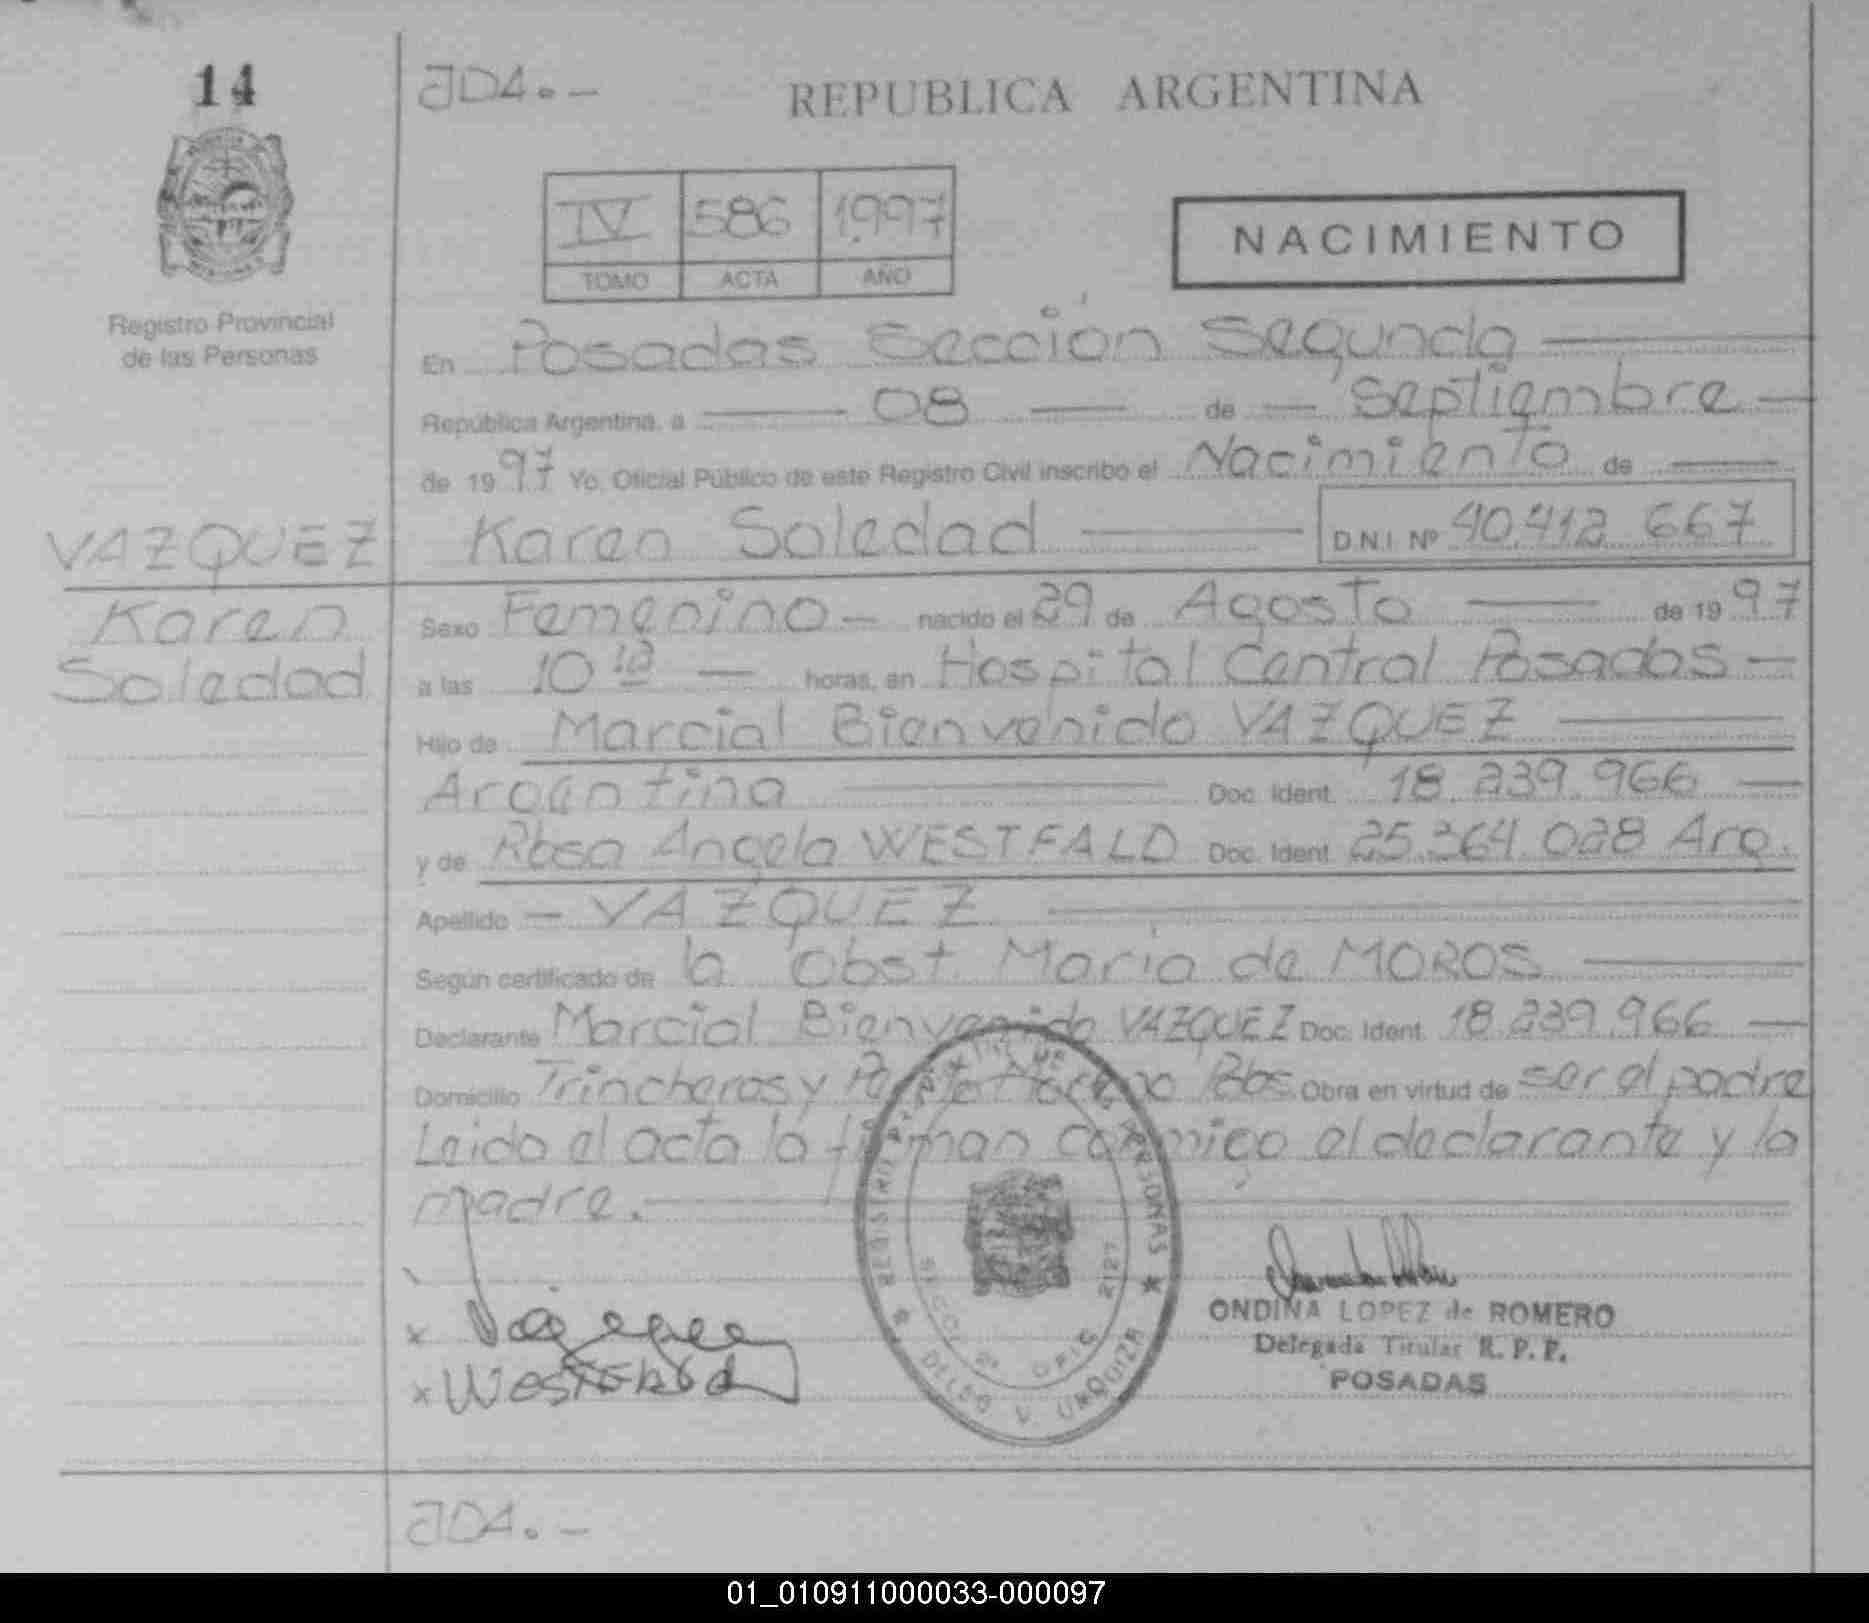 14
JDA.-
REPUBLICA ARGENTINA
IV 586 1.997
TOMO ACTA AÑO
NACIMIENTO
Registro Provincial
de las Personas
En Posadas Sección Segunda
República Argentina, a 08 de Septiembre
de 1997 Yo, Oficial Público de este Registro Civil inscribo el Nacimiento de
VAZQUEZ
Karen Soledad
D.N.I. Nº 40.412.667
Karen
Soledad
Sexo Femenino - nacido el 29 de Agosto de 1997
a las 10 10 horas, en Hospital Central Posadas
Hijo de Marcial Bienvenido VAZQUEZ
Argentina Doc. Ident. 18.239.966
y de Rosa Angela WESTFALD Doc. Ident. 25.364.028 Arg.
Apellido - VAZQUEZ
Según certificado de la Obst Maria de MOROS
Declarante Marcial Bienvenido VAZQUEZ Doc. Ident. 18.239.966
Domicilio Trincheras y Moreno Pdas. Obra en virtud de ser el padre
Leido el acta la firman conmigo el declarante y la
madre.
REGISTRO DE LAS PERSONAS
SECC. 2ª OFIC 2127
DELEG V. URQUIZA
x Vazquez
x Westfald
ONDINA LOPEZ de ROMERO
Delegada Titular R. P. P.
POSADAS
JDA.-
01_010911000033-000097